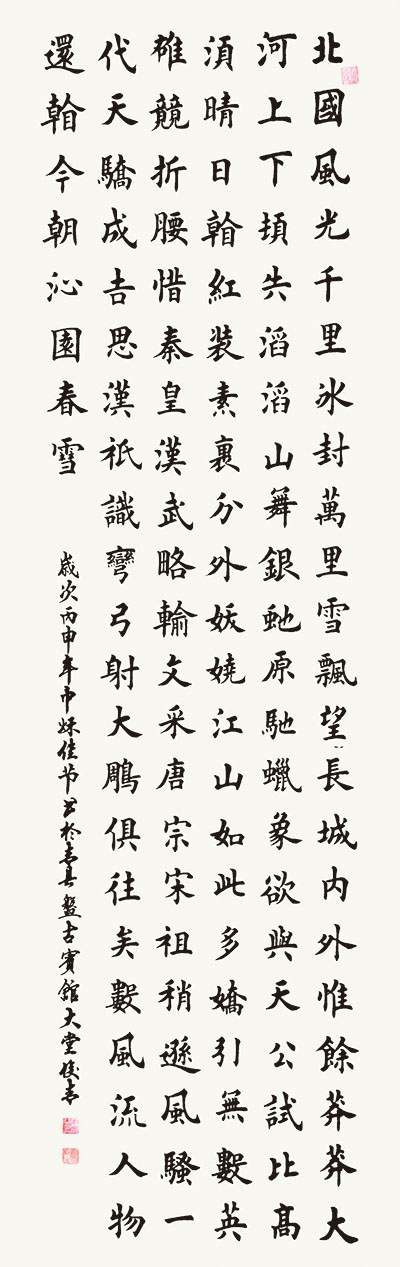 北國風光千里冰封萬里雪飄望長城內外惟餘莽莽大
河上下頓失滔滔山舞銀虵原馳蠟象欲與天公試比高
須晴日看紅裝素裹分外妖嬈江山如此多嬌引無數英
雄競折腰惜秦皇漢武略輸文采唐宗宋祖稍遜風騷一
代天驕成吉思漢祇識彎弓射大鵰俱往矣數風流人物
還看今朝沁園春雪
歲次丙申年中秋佳节书於青县盤古賓館大堂